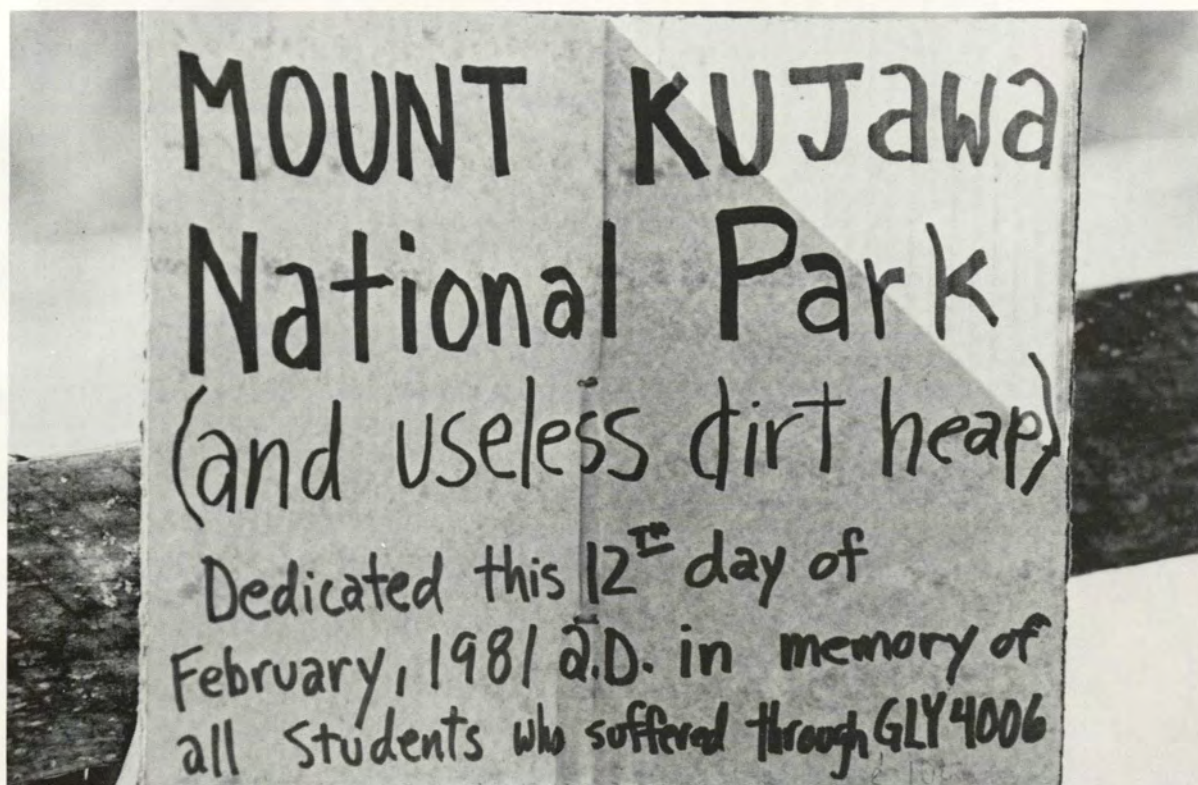 MOUNT KUJawa
National Park
(and useless dirt heap)
Dedicated this 12TH day of
February, 1981 a.D. in memory of
all Students who suffered through GLY 4006